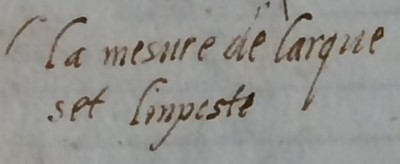 la mesure de larque
set linpeste